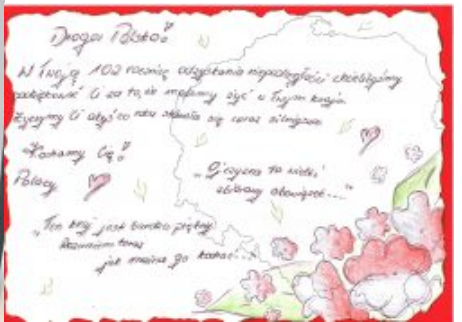 Droga Polsko!
W Twoją 102 rocznicę odzyskania niepodległości chcielibyśmy
podziękować Ci za to, że możemy żyć w Twym kraju.
Życzymy Ci abyś co roku stawała się coraz silniejsza.
Kochamy Cię!
Polacy
"Ojczyzna to wielki
zbiorowy obowiązek..."
"Ten kraj jest bardzo piękny
Rozumiem teraz
jak można go kochać..."